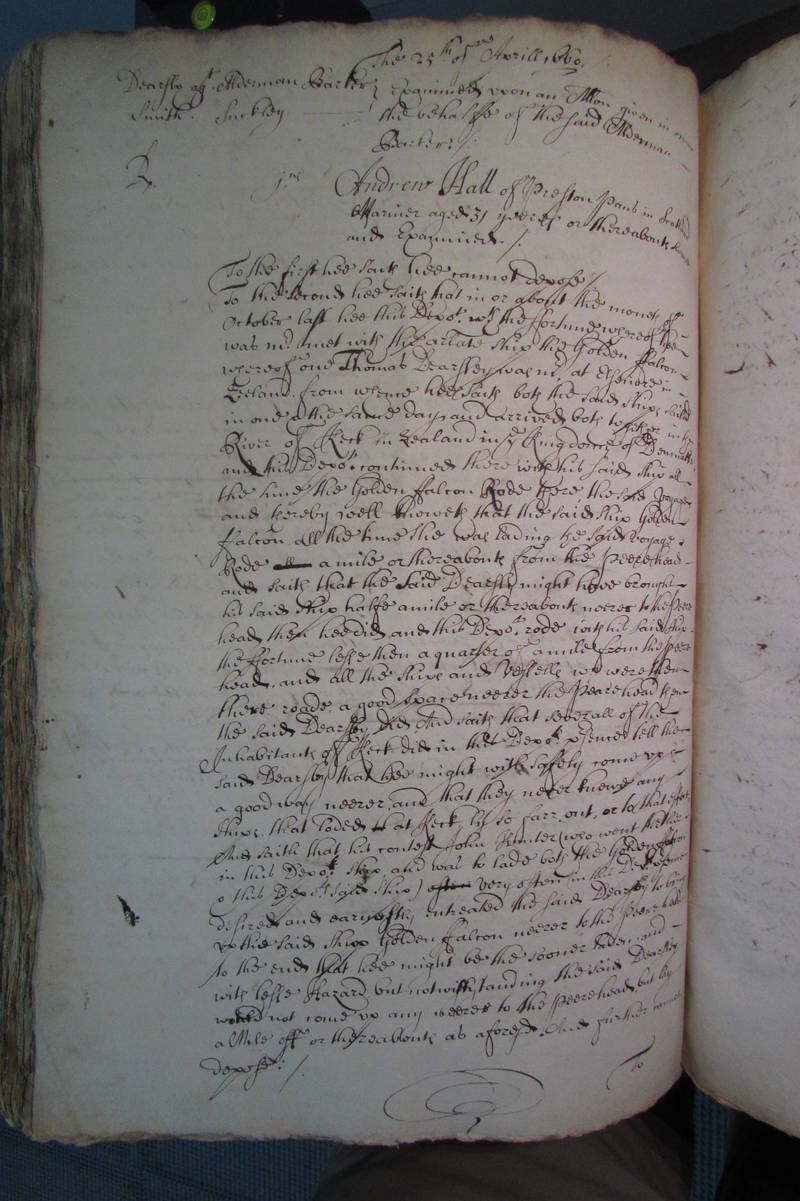 The 25th of Aprill 1660
Dearsly agt Alderman Barker
Smith. Suckley
Examined upon an Allon given in on
the behalfe of the said Alderman
Barker /.
1us
Andrew Hall of Preston Pans in Scotland
Mariner aged 31 yeeres or thereabouts sworne
and Examined. /.
To the first hee saith hee cannot depose /
To the second hee saith that in or about the moneth of
October last hee this Depot wth the ffortune whereof hee
was mr met with the arlate ship the Golden ffalcon
whereof one Thomas Dearsley was mr, at Elsenore in
Zeeland, from whence hee saith both the said ships sailed
in one & the same day, and arrived both together in the
River of Keck in Zealand in ye Kingdome of Denmarke
and this Depot continued there with his said ship all
the time the Golden ffalcon Rode there the said voyage
and thereby well knoweth that the said ship Golden
ffalcon all the time she was lading the said voyage
Rode a mile or thereabouts from the Peerehead
and saith that the said Dearsly might have brought
his said ship halfe a mile or thereabouts neerer to the Peere
head then hee did, and this Depot rode with his said ship
the ffortune lesse then a quarter of a mile from the Peere
head, and all the ships and vessells wch were then
there roade a good space neerer the Pearehead then
the said Dearsly did, And saith that severall of the
Inhabitants of Keck did in this Depots psence tell the
said Dearsly that hee might with safety come up
a good way neerer, and that they never knewe any
ships that loded at Keck lye so farr out, or to that effect
And saith that his contest John Hunter (who went thither
in this Depots ship, and was to lade both the Golden ffalcon
& this Depots said ship) very often in this Depots psence
desired and earnestly entreated the said Dearsly to bring
up the said shipp Golden ffalcon neerer to the Peerehead
to the end that hee might be the sooner laden, and
with lesse Hazard, but notwithstanding the said Dearsly
would not come up any neerer to the Peerehead, but lay
a Mile off or thereabouts as aforesd, And further cannot
depose: /.
To